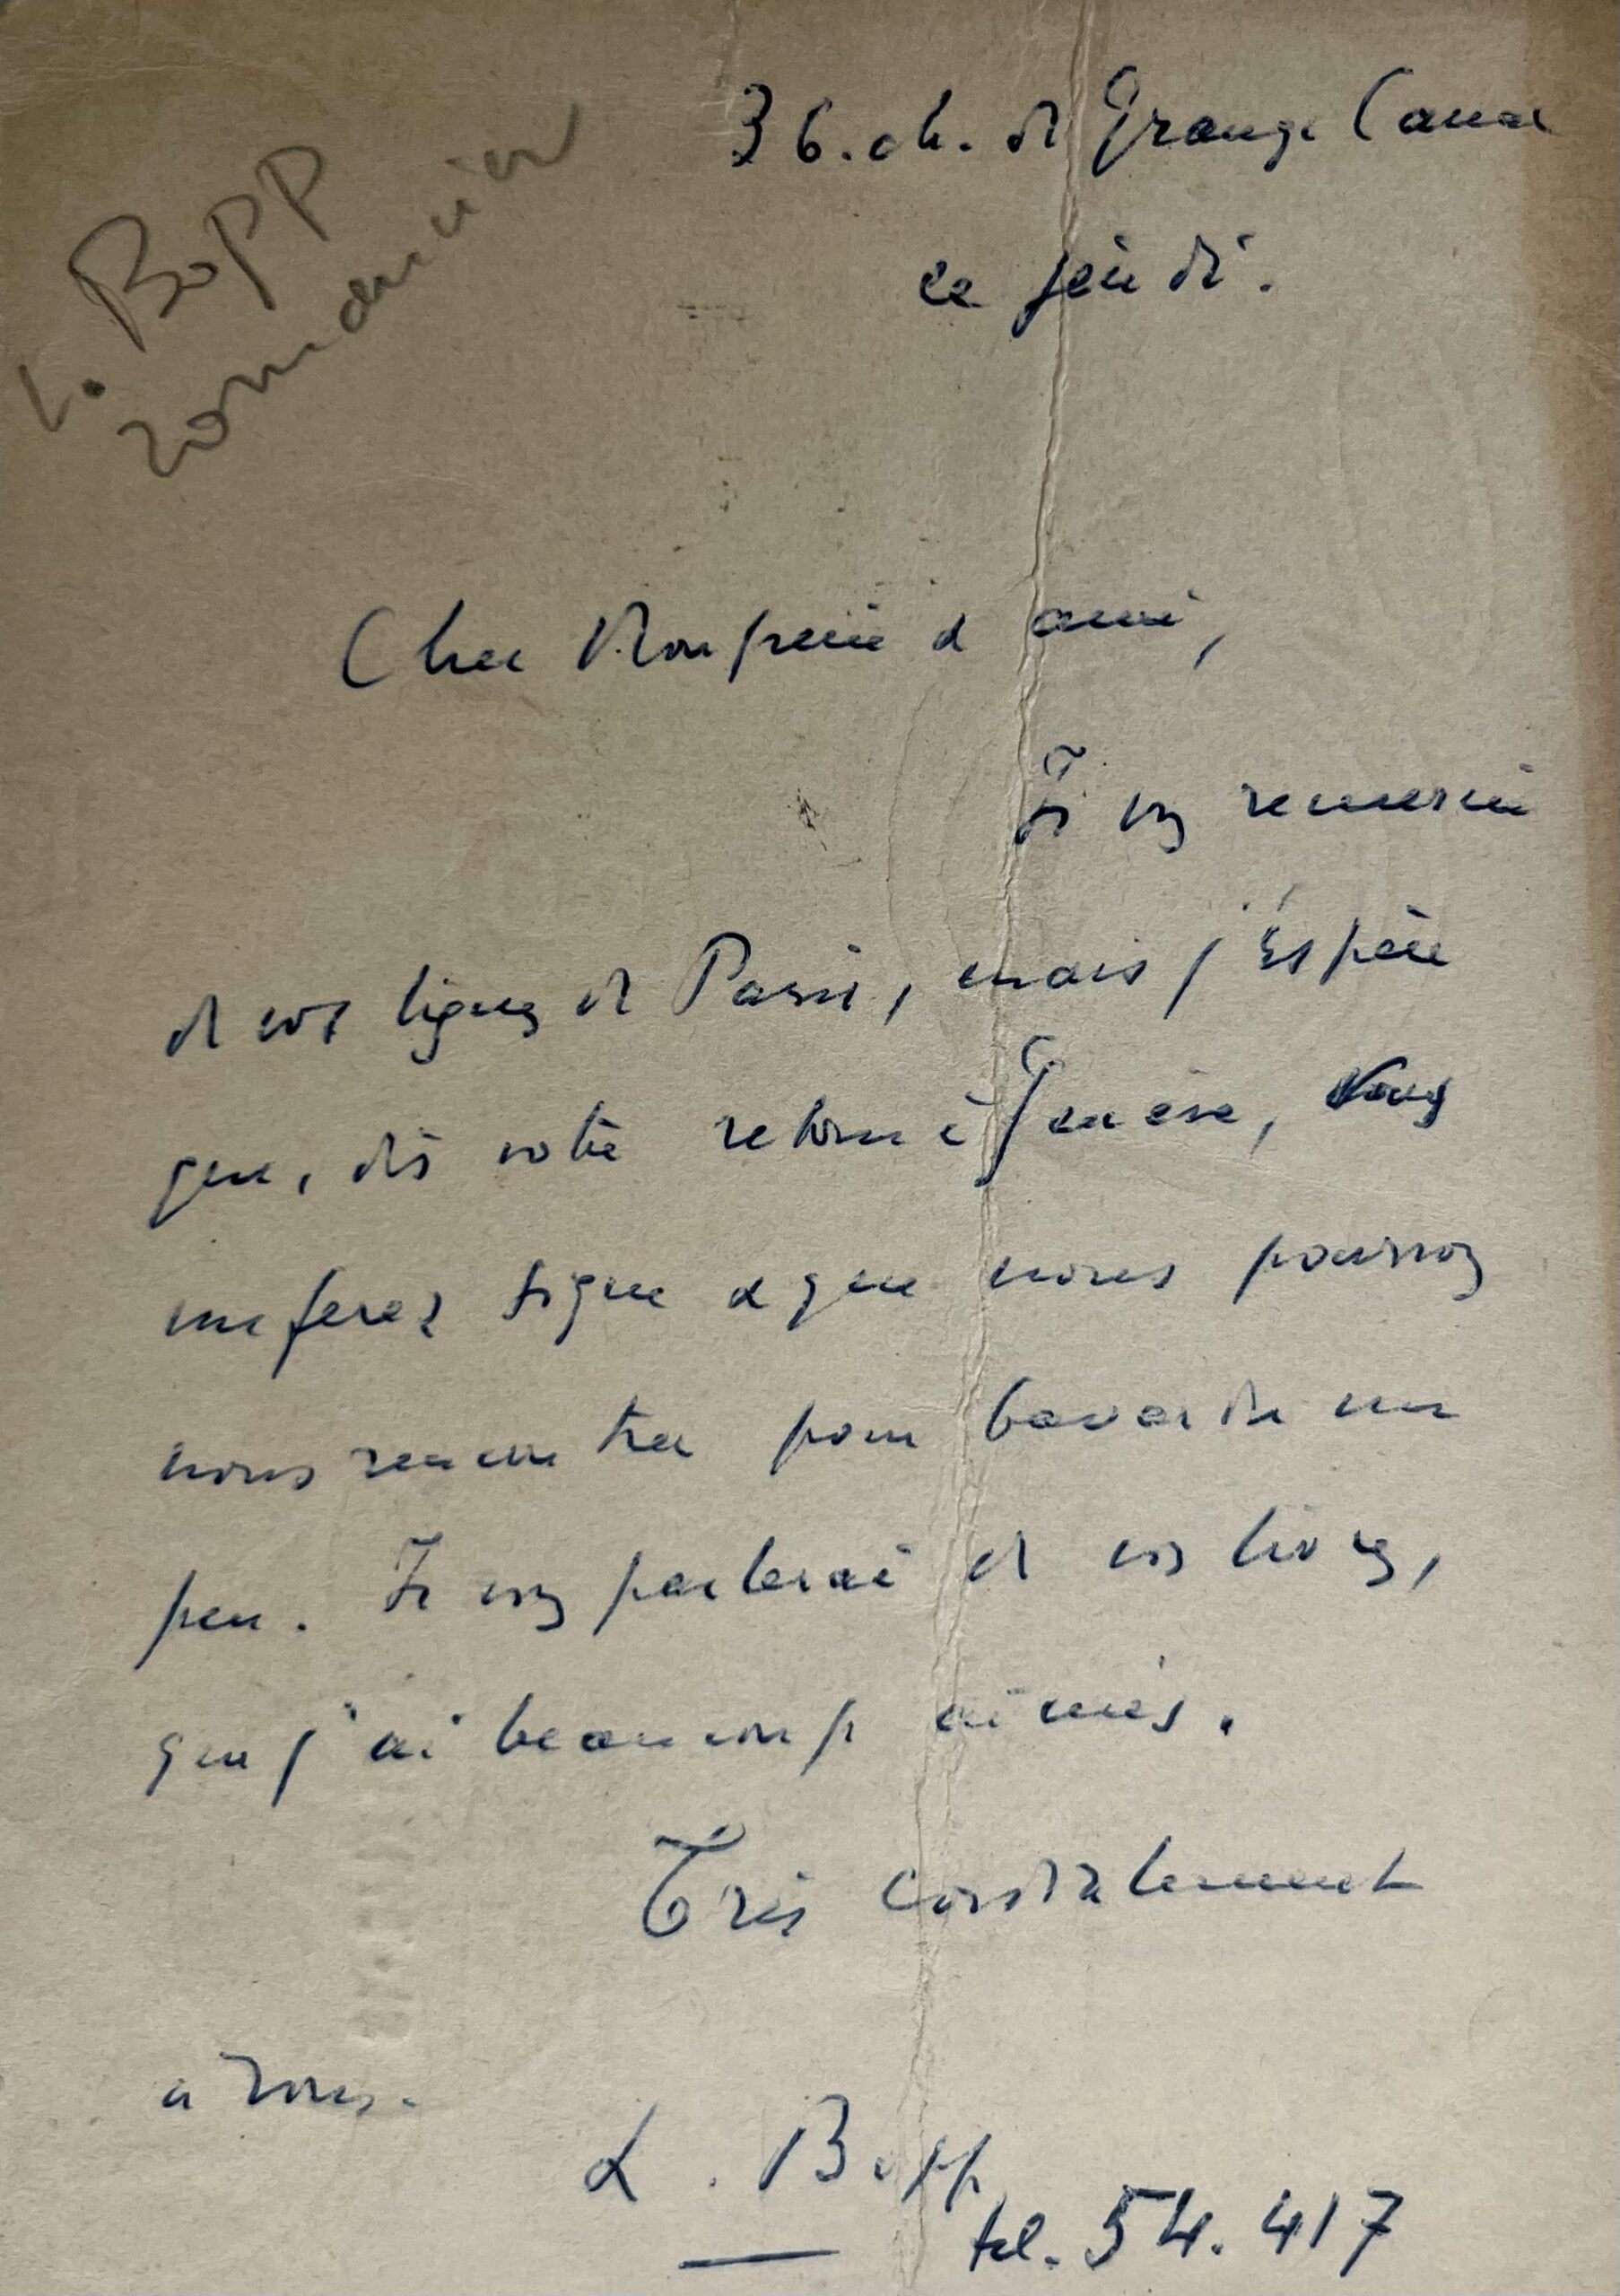 36. ch. de Grange Canal
ce jeudi.
L. Bopp
romancier
Cher Monsieur & ami,
Je vs remercie
de vos lignes de Paris, mais j'espère
que, dès votre retour à Genève, vous
me ferez signe & que nous pourrons
nous rencontrer pour bavarder un
peu. Je vous parlerai de vos livres,
que j'ai beaucoup aimés.
Très cordialement
à vous.
L. Bopp
tel. 54.417